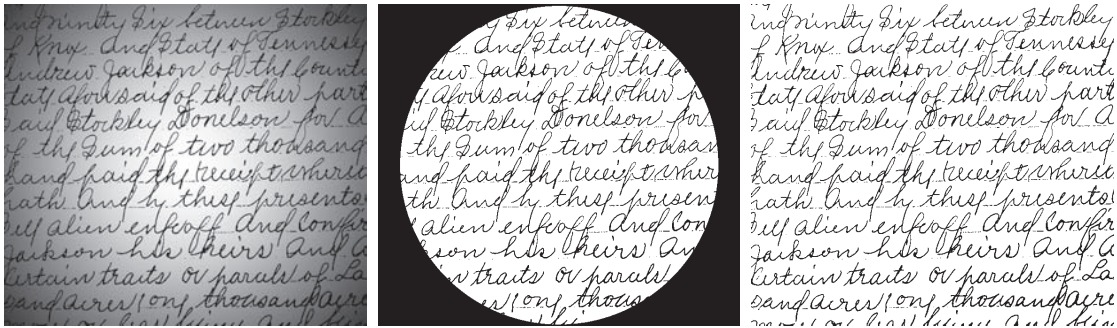 and ninty Six between Stockley
of Knox and State of Tennessey
Andrew Jackson of the Count
tate aforesaid of the other part
said Stockley Donelson for a
of the Sum of two thousand
hand paid the receipt where
hath and by these presents
Sell alien enfeoff and Confir
Jackson his heirs and a
Certain tracts or parcels of La
sand acres (one thousand acre
ty Six between
and State of Ten
rew Jackson of the C
aforesaid of the other p
id Stockley Donelson for
the Sum of two thousan
and paid the receipt where
ath and by these presen
alien enfeoff and Con
kson his heirs an
in tracts or parcels
es (one thous
and ninty Six between Stockley
of Knox and State of Tennessey
Andrew Jackson of the Count
tate aforesaid of the other part
said Stockley Donelson for a
of the Sum of two thousand
hand paid the receipt where
hath and by these presents
Sell alien enfeoff and Confir
Jackson his heirs and a
Certain tracts or parcels of La
sand acres (one thousand acre